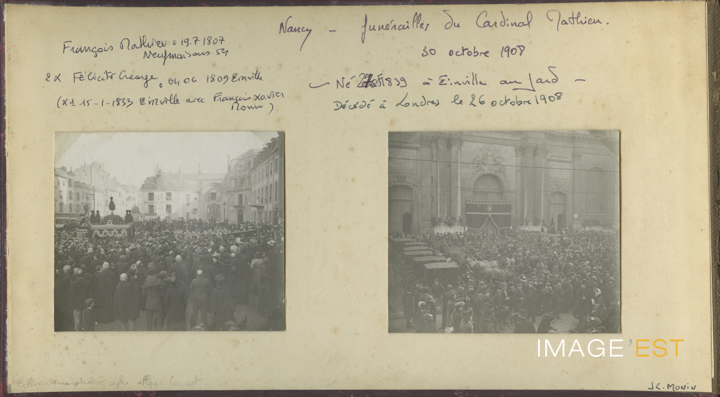 Nancy - funérailles du Cardinal Mathieu.
30 octobre 1908
Né 1839 à Einville au Jard -
Décédé à Londres le 26 octobre 1908
François Mathieu o 19.7.1807
Neufmaisons 54
2 X Félicité Géorge, o 04 06 1809 Einville
(X1 15-1-1833 Einville avec François Xavier
Monin)
IMAGE'EST
J.C. MONIN